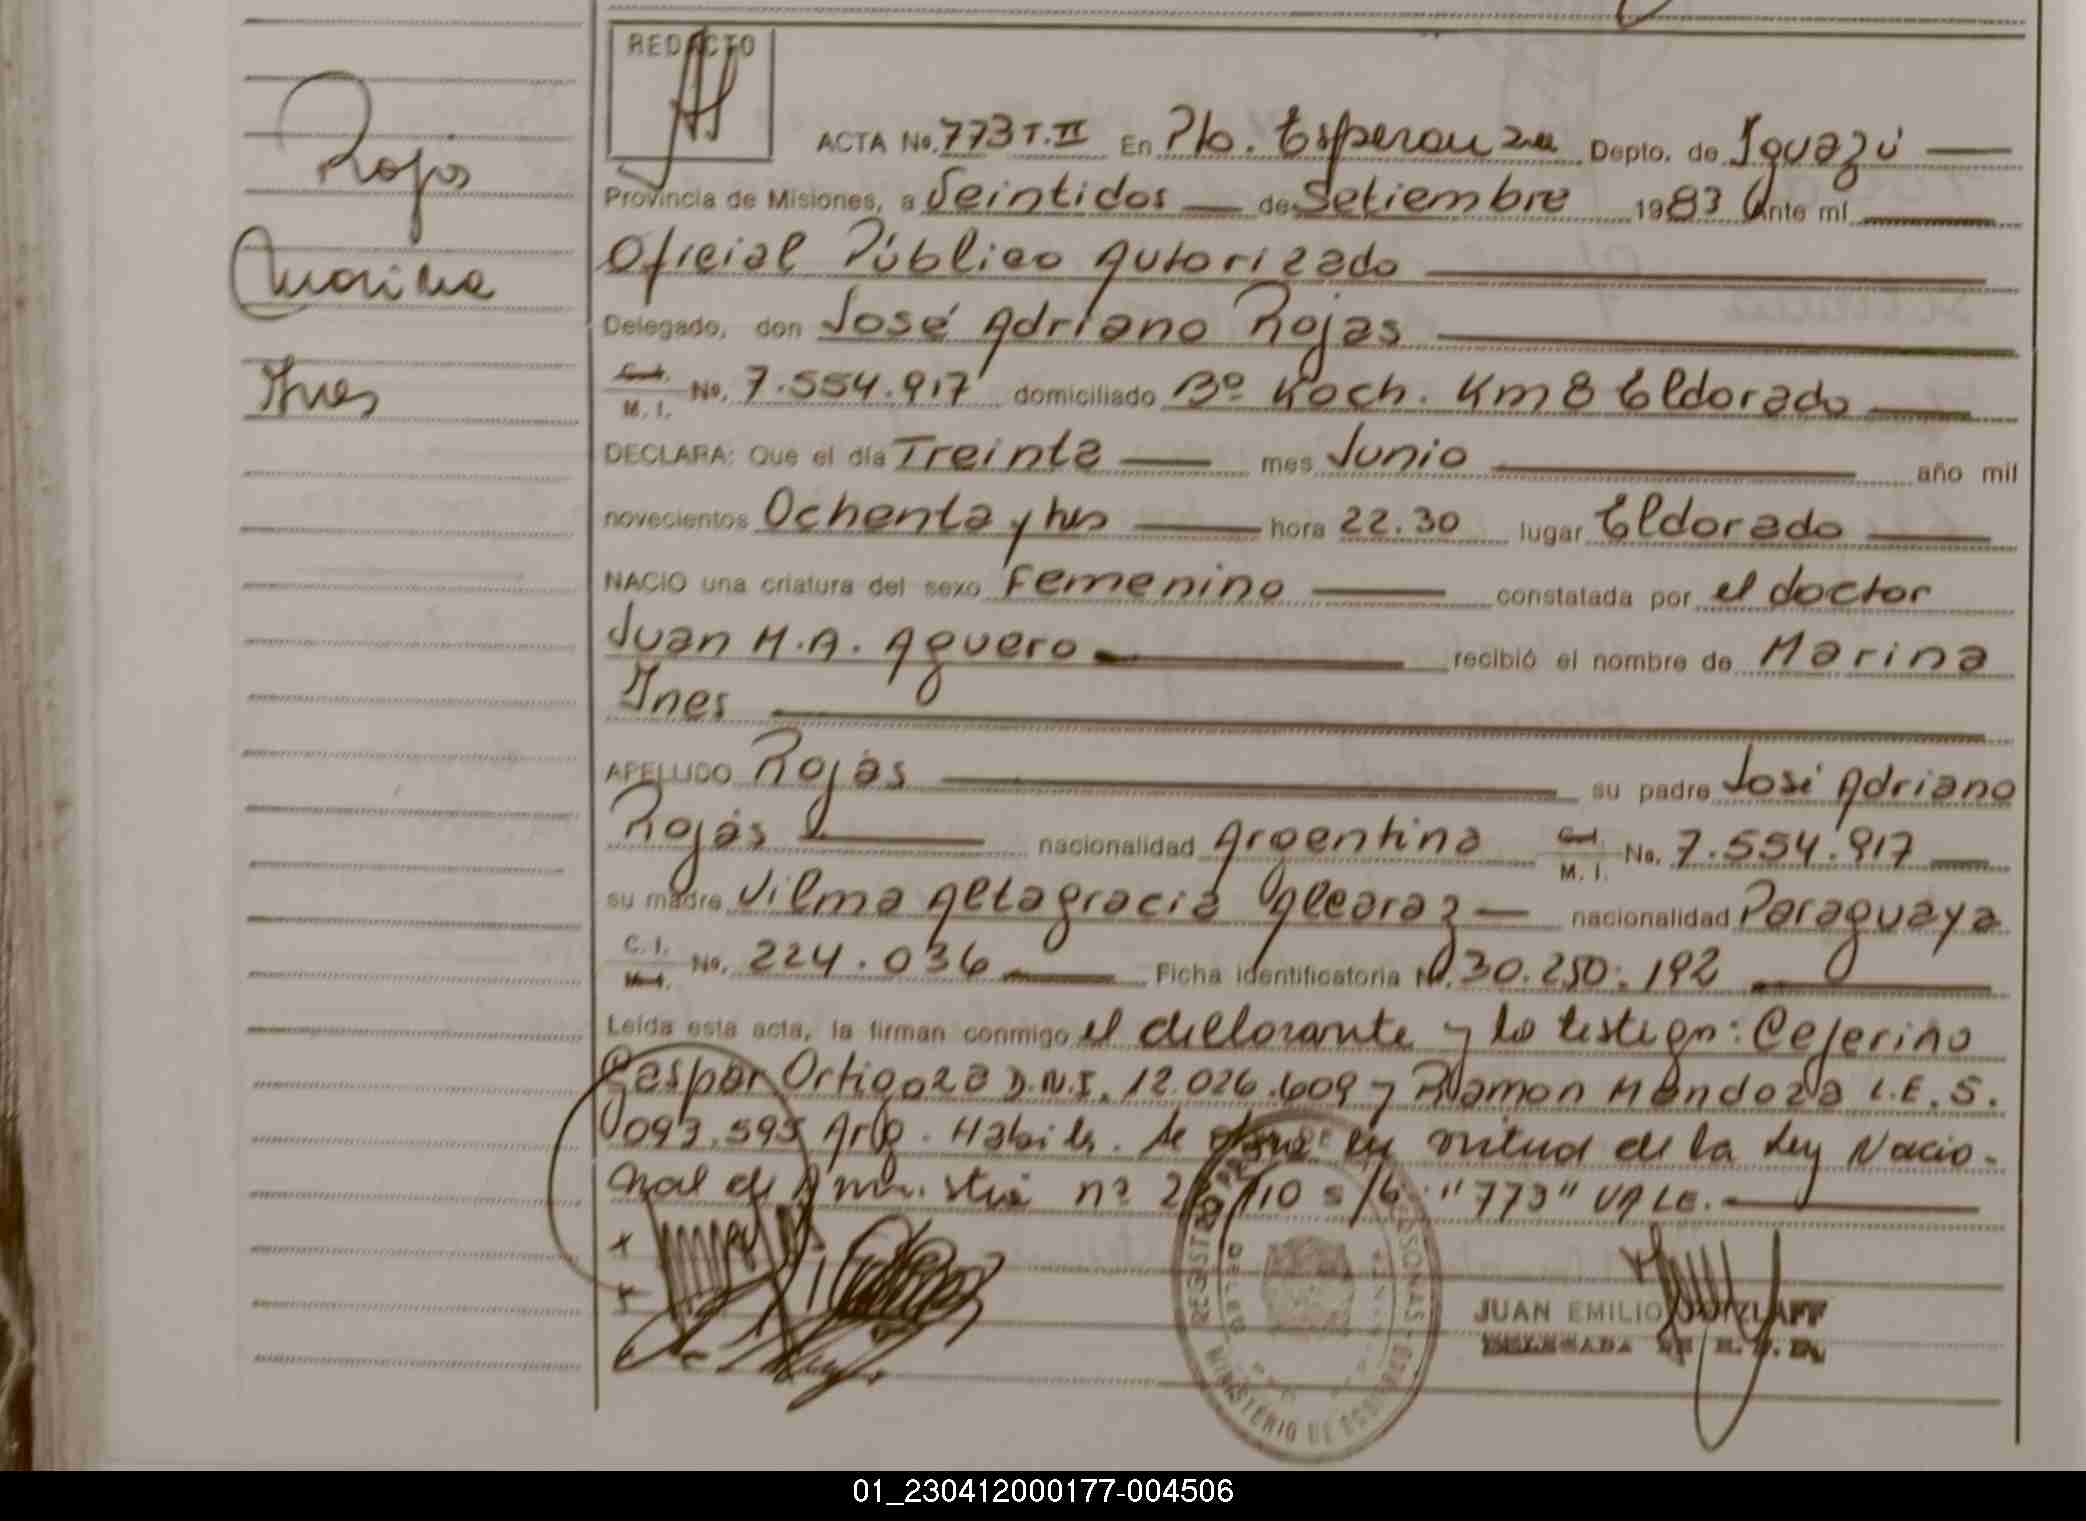 REDACTO
Rojas
Marina
Ines
ACTA No. 773 T. II En Pto. Esperanza Depto. de Iguazú
Provincia de Misiones, a Veintidos de Setiembre 1983 Ante mí
Oficial Público Autorizado
Delegado, don José Adriano Rojas
C.I. M. I. No. 7.554.917 domiciliado Bº Koch. Km 8 Eldorado
DECLARA: Que el día Treinta mes Junio año mil
novecientos Ochenta y tres hora 22.30 lugar Eldorado
NACIO una criatura del sexo Femenino constatada por el doctor
Juan H.A. Aguero recibió el nombre de Marina
Ines
APELLIDO Rojas su padre José Adriano
Rojas nacionalidad Argentina C.I. M. I. No. 7.554.917
su madre Vilma Altagracia Valcaraz nacionalidad Paraguaya
C. I. M.I. No. 224.036 Ficha identificatoria Nº. 30.250.192
Leída esta acta, la firman conmigo el declarante y los testigos: Ceferino
Gaspar Ortigoza D.N.I. 12.026.609 y Ramon Mendoza L.E. 5.
093.595 Arg. Habiles. Se en virtud de la Ley Nacio-
nal de Amnistia nº s/b "773" VALE.
JUAN EMILIO
REGISTRO PERSONAS
MINISTERIO DE
01_230412000177-004506